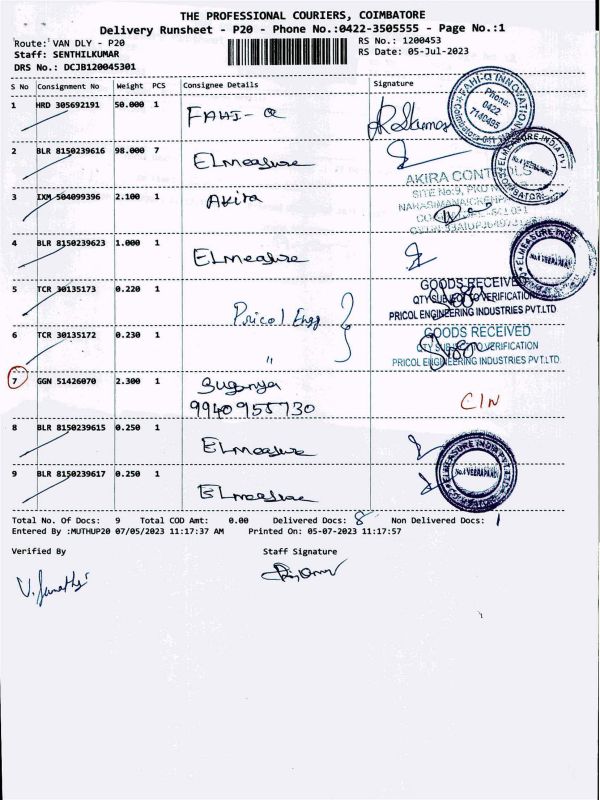 THE PROFESSIONAL COURIERS, COIMBATORE
Delivery Runsheet - P20 - Phone No.:0422-3505555 - Page No.:1
Route: VAN DLY - P20 RS No.: 1200453
Staff: SENTHILKUMAR RS Date: 05-Jul-2023
DRS No.: DCJB120045301
S No Consignment No Weight PCS Consignee Details Signature
1 HRD 305692191 50.000 1 FAHI-Q
FAHI-Q INNOVATION
Phone:
0422
2 BLR 8150239616 98.000 7 ELmeasure
ELMEASURE INDIA PVT
COIMBATORE
3 IXM 504099396 2.100 1 Akira
AKIRA CONTROLS
SITE No:9,
4 BLR 8150239623 1.000 1 ELmeasure
ELMEASURE INDIA
5 TCR 30135173 0.220 1 Pricol Engg
GOODS RECEIVED
QTY SUBJECT TO VERIFICATION
PRICOL ENGINEERING INDUSTRIES PVT.LTD
6 TCR 30135172 0.230 1 "
GOODS RECEIVED
QTY SUBJECT TO VERIFICATION
PRICOL ENGINEERING INDUSTRIES PVT.LTD.
7 GGN 51426070 2.300 1 Suganya
9940955730
CIN
8 BLR 8150239615 0.250 1 ELmeasure
9 BLR 8150239617 0.250 1 ELmeasure
ELMEASURE INDIA PVT.LTD
COIMBATORE
Total No. Of Docs: 9 Total COD Amt: 0.00 Delivered Docs: 8 Non Delivered Docs: 1
Entered By :MUTHUP20 07/05/2023 11:17:37 AM Printed On: 05-07-2023 11:17:57
Verified By Staff Signature